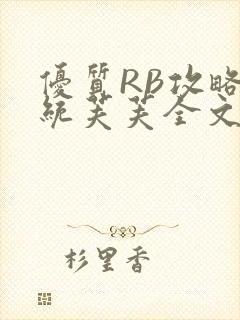 優質RB攻略
統芙芙全文
杉里香